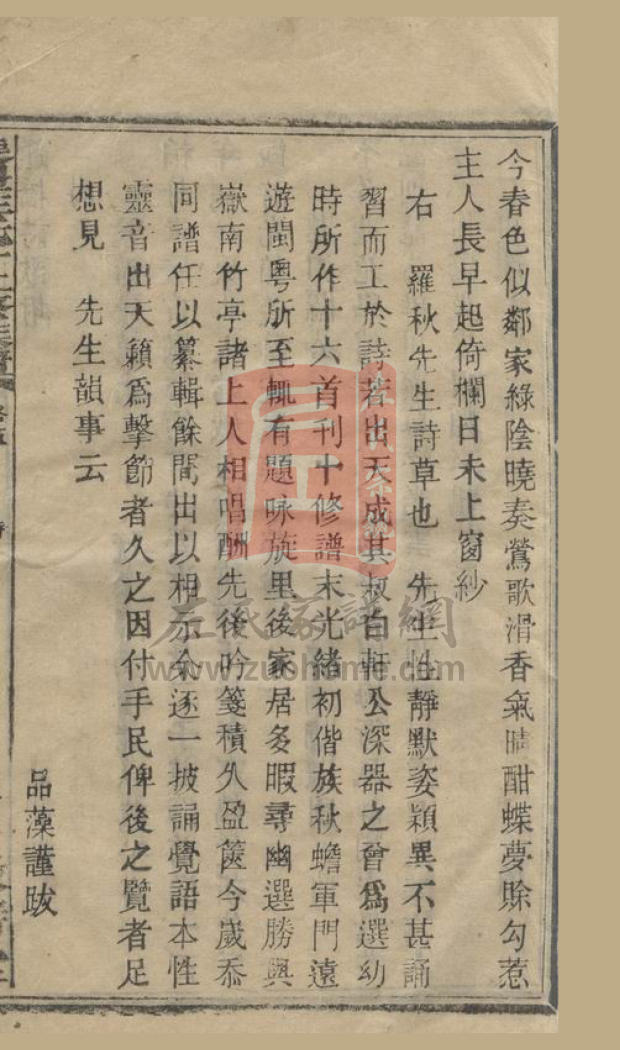 今春色似鄰家綠陰曉奏鶯歌滑香氣晴酣蝶夢賒勾惹
主人長早起倚欄日未上窗紗
右　羅秋先生詩草也　先生性靜默姿穎異不甚誦
習而工於詩若出天成其叔白軒公深器之曾爲選幼
時所作十六首刊十修譜末光緒初偕族秋蟾軍門遠
遊閩粵所至輒有題咏旋里後家居多暇尋幽選勝與
嶽南竹亭諸上人相唱酬先後吟箋積久盈篋今歲忝
同譜任以纂輯餘閒出以相示余逐一披誦覺語本性
靈音出天籟爲擊節者久之因付手民俾後之覽者足
想見　先生韻事云
品藻謹跋
左氏家譜網
www.zuohome.com